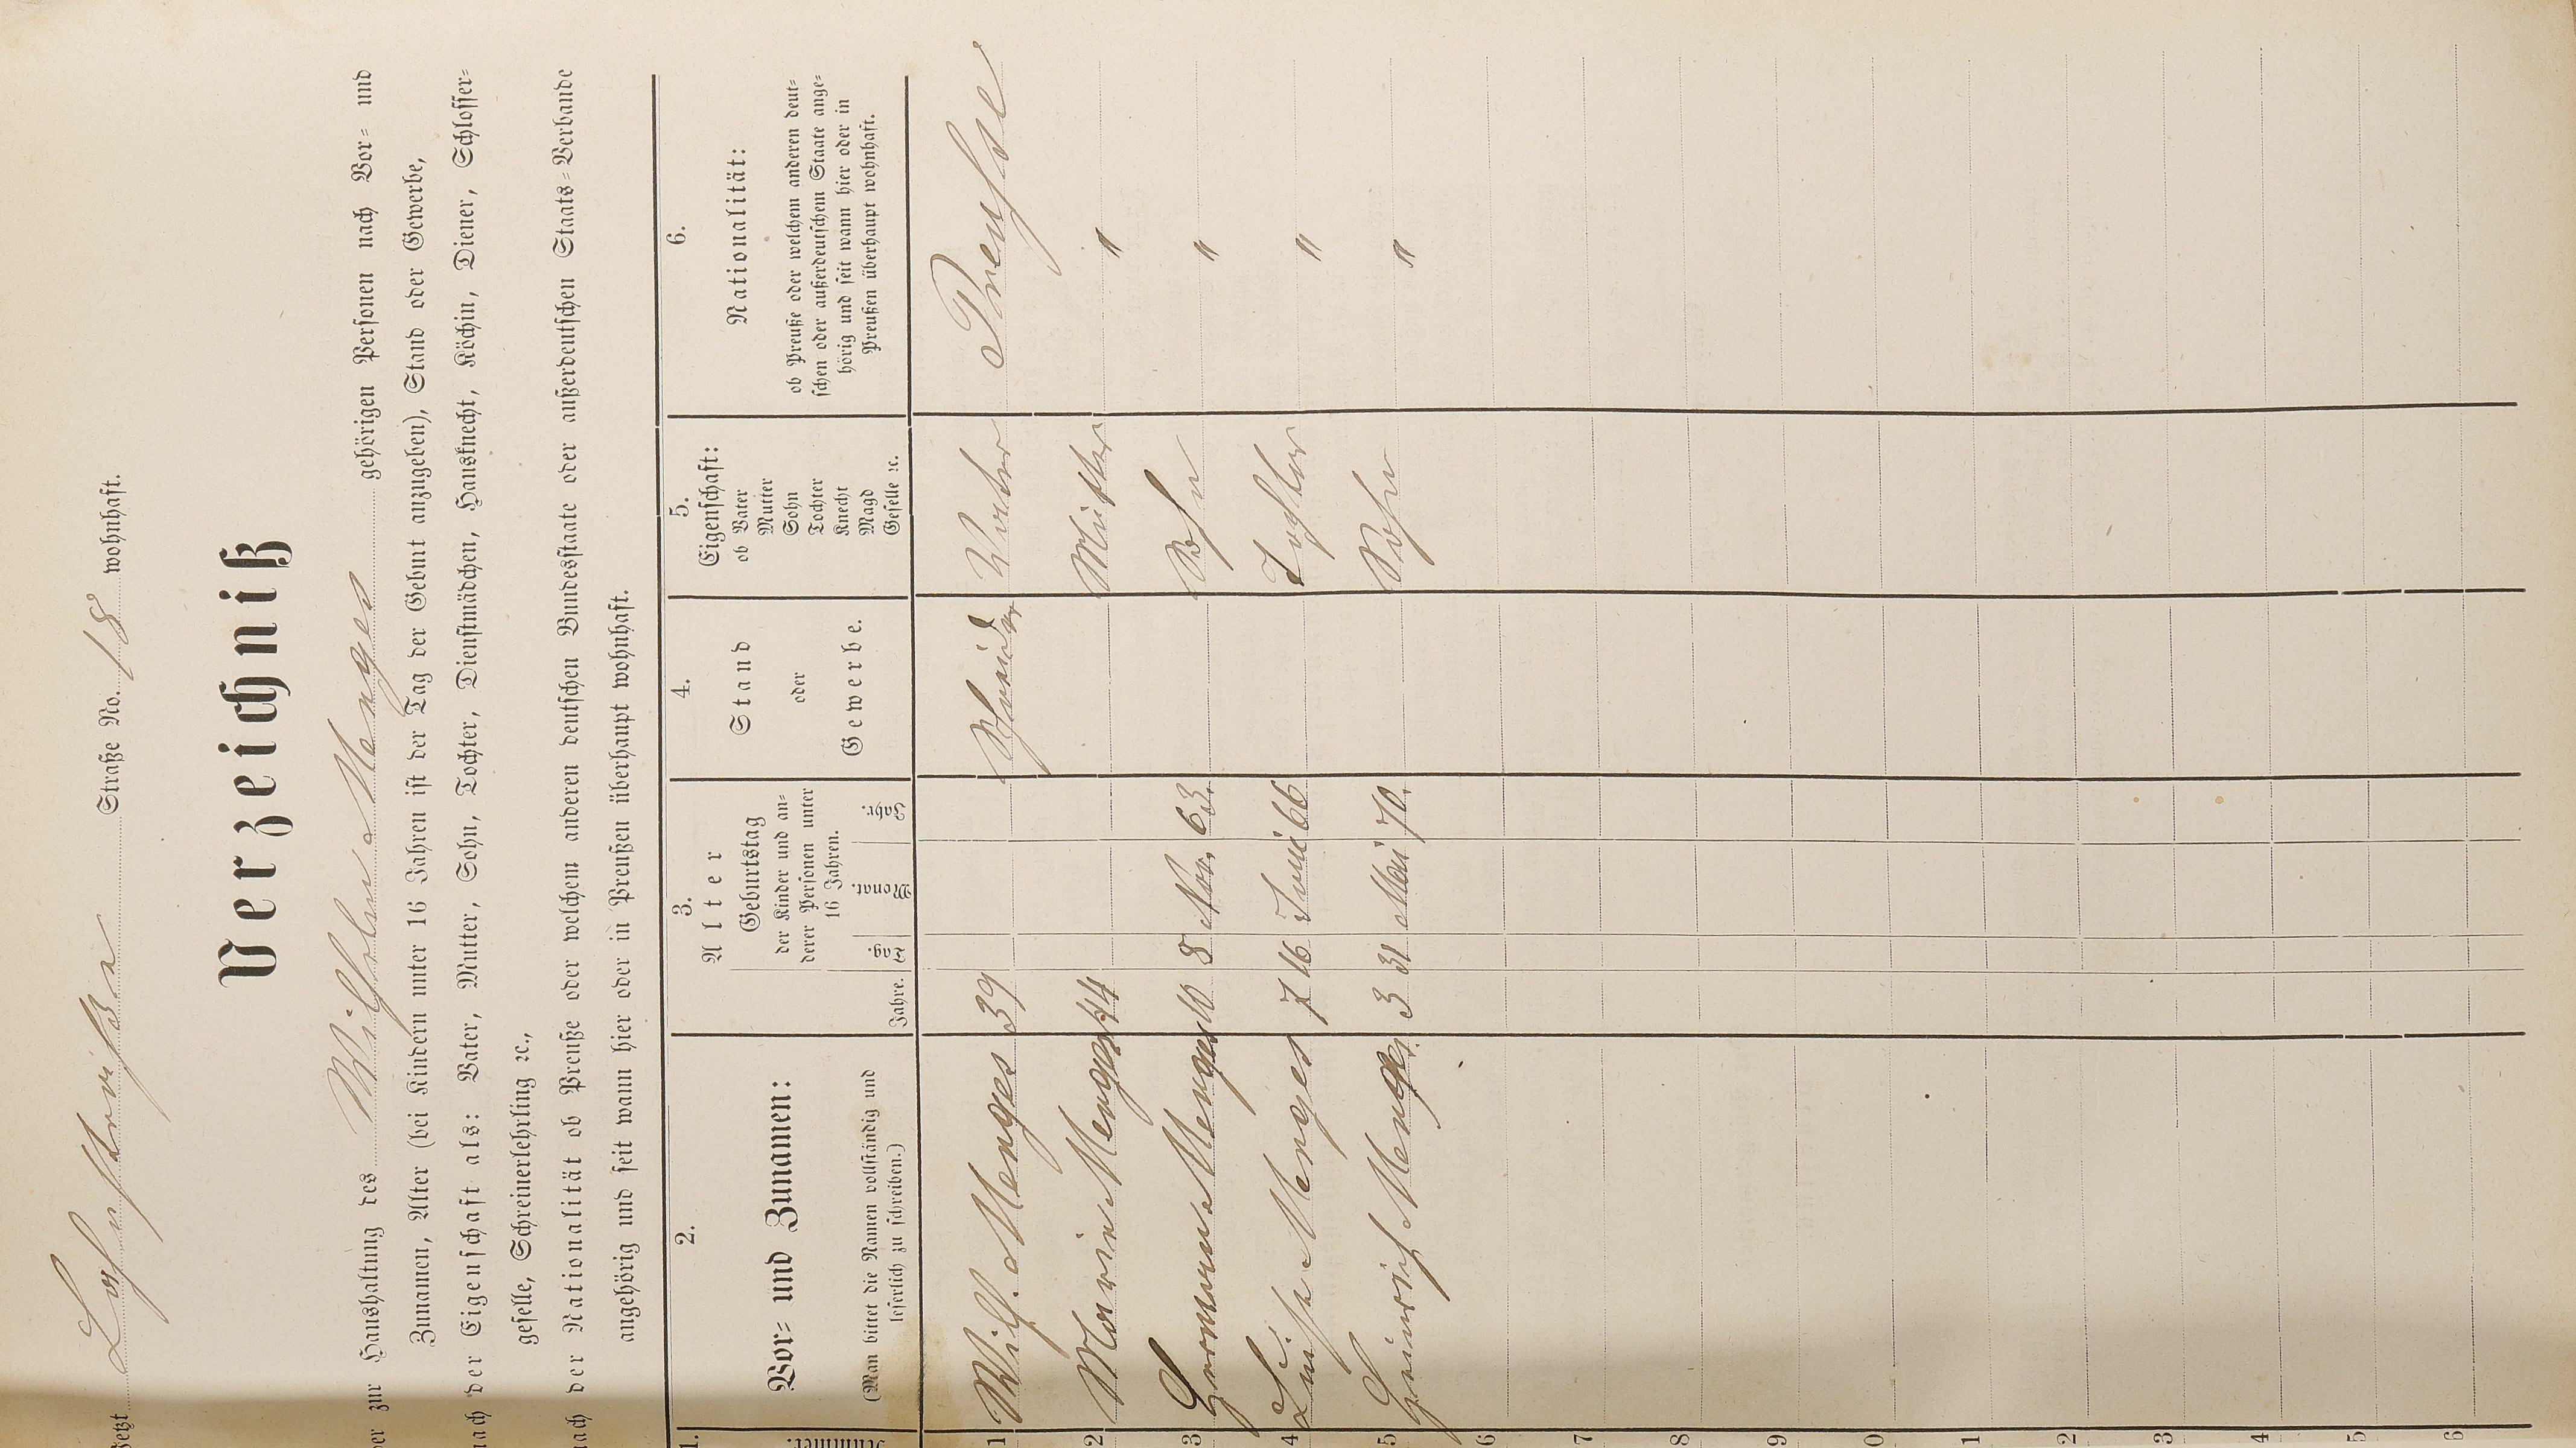 Jetzt Lohnstraße Straße No. 18 wohnhaft.
Verzeichniß
der zur Haushaltung des Wilhelm Menges gehörigen Personen nach Vor= und
Zunamen, Alter (bei Kindern unter 16 Jahren ist der Tag der Geburt anzugeben), Stand oder Gewerbe,
nach der Eigenschaft als: Vater, Mutter, Sohn, Tochter, Dienstmädchen, Hausknecht, Köchin, Diener, Schlosser=
geselle, Schreinerlehrling ꝛc.,
nach der Nationalität ob Preuße oder welchem anderen deutschen Bundesstaate oder außerdeutschen Staats=Verbande
angehörig und seit wann hier oder in Preußen überhaupt wohnhaft.
1. 2. 3. 4. 5. 6.
Nummer.
Vor= und Zunamen:
(Man bittet die Namen vollständig und
leserlich zu schreiben.)
Alter
Jahre.
Geburtstag
der Kinder und an=
derer Personen unter
16 Jahren.
Tag. Monat. Jahr.
Stand
oder
Gewerbe.
Eigenschaft:
ob Vater
Mutter
Sohn
Tochter
Knecht
Magd
Geselle ꝛc.
Nationalität:
ob Preuße oder welchem anderen deut=
schen oder außerdeutschem Staate ange=
hörig und seit wann hier oder in
Preußen überhaupt wohnhaft.
1 Wilh. Menges 39 Schneider Vater Preuße
2 Marie Menges 44 Mutter "
3 Hermann Menges 10 8 Nov. 63. Sohn "
4 Luise Menges 7 16 Juni 66 Tochter "
5 Heinrich Menges. 3 31 Mai 70. Sohn "
6
7
8
9
0
1
2
3
4
5
6